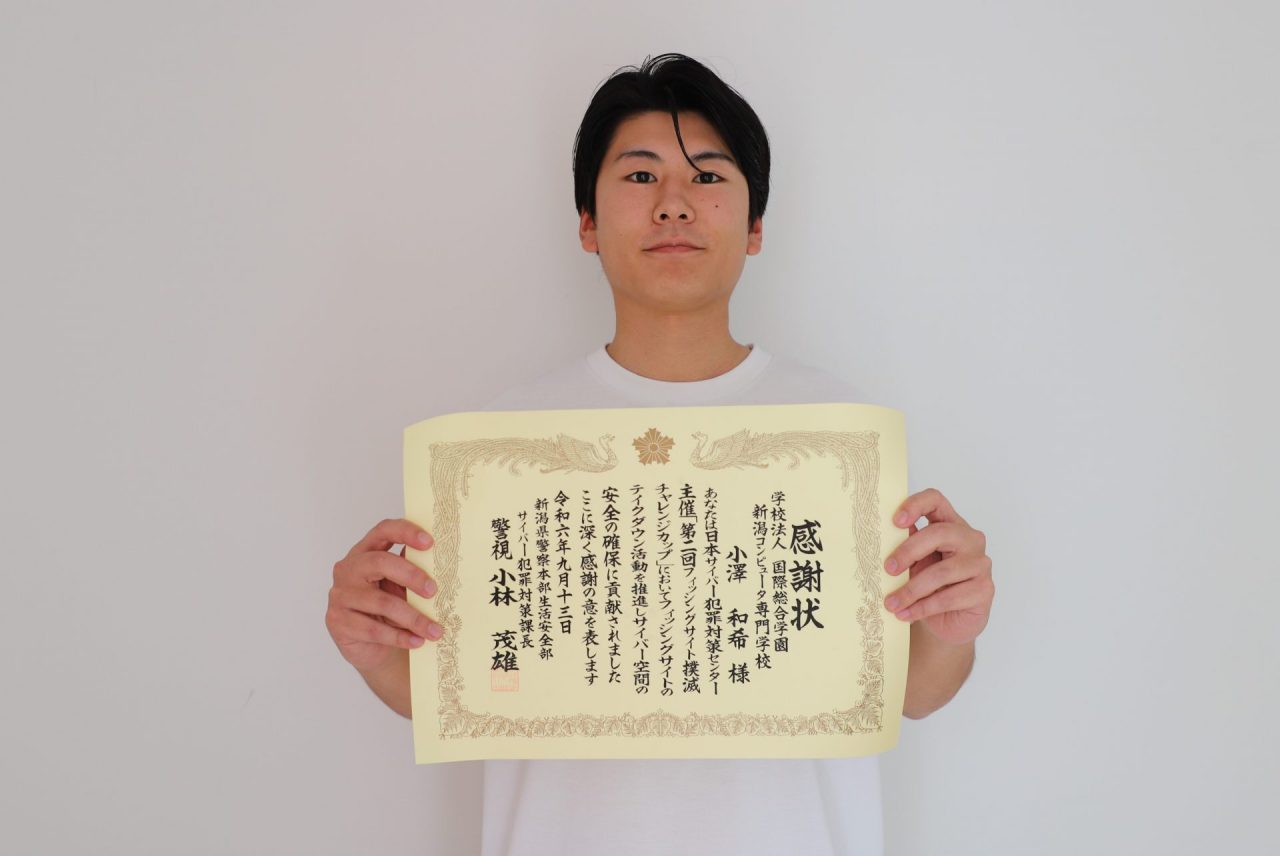 感謝状
学校法人 国際総合学園
新潟コンピュータ専門学校
小澤 和希 様
あなたは日本サイバー犯罪対策センター
主催「第二回フィッシングサイト撲滅
チャレンジカップ」においてフィッシングサイトの
テイクダウン活動を推進しサイバー空間の
安全の確保に貢献されました
ここに深く感謝の意を表します
令和六年九月十三日
新潟県警察本部生活安全部
サイバー犯罪対策課長
警視 小林 茂雄